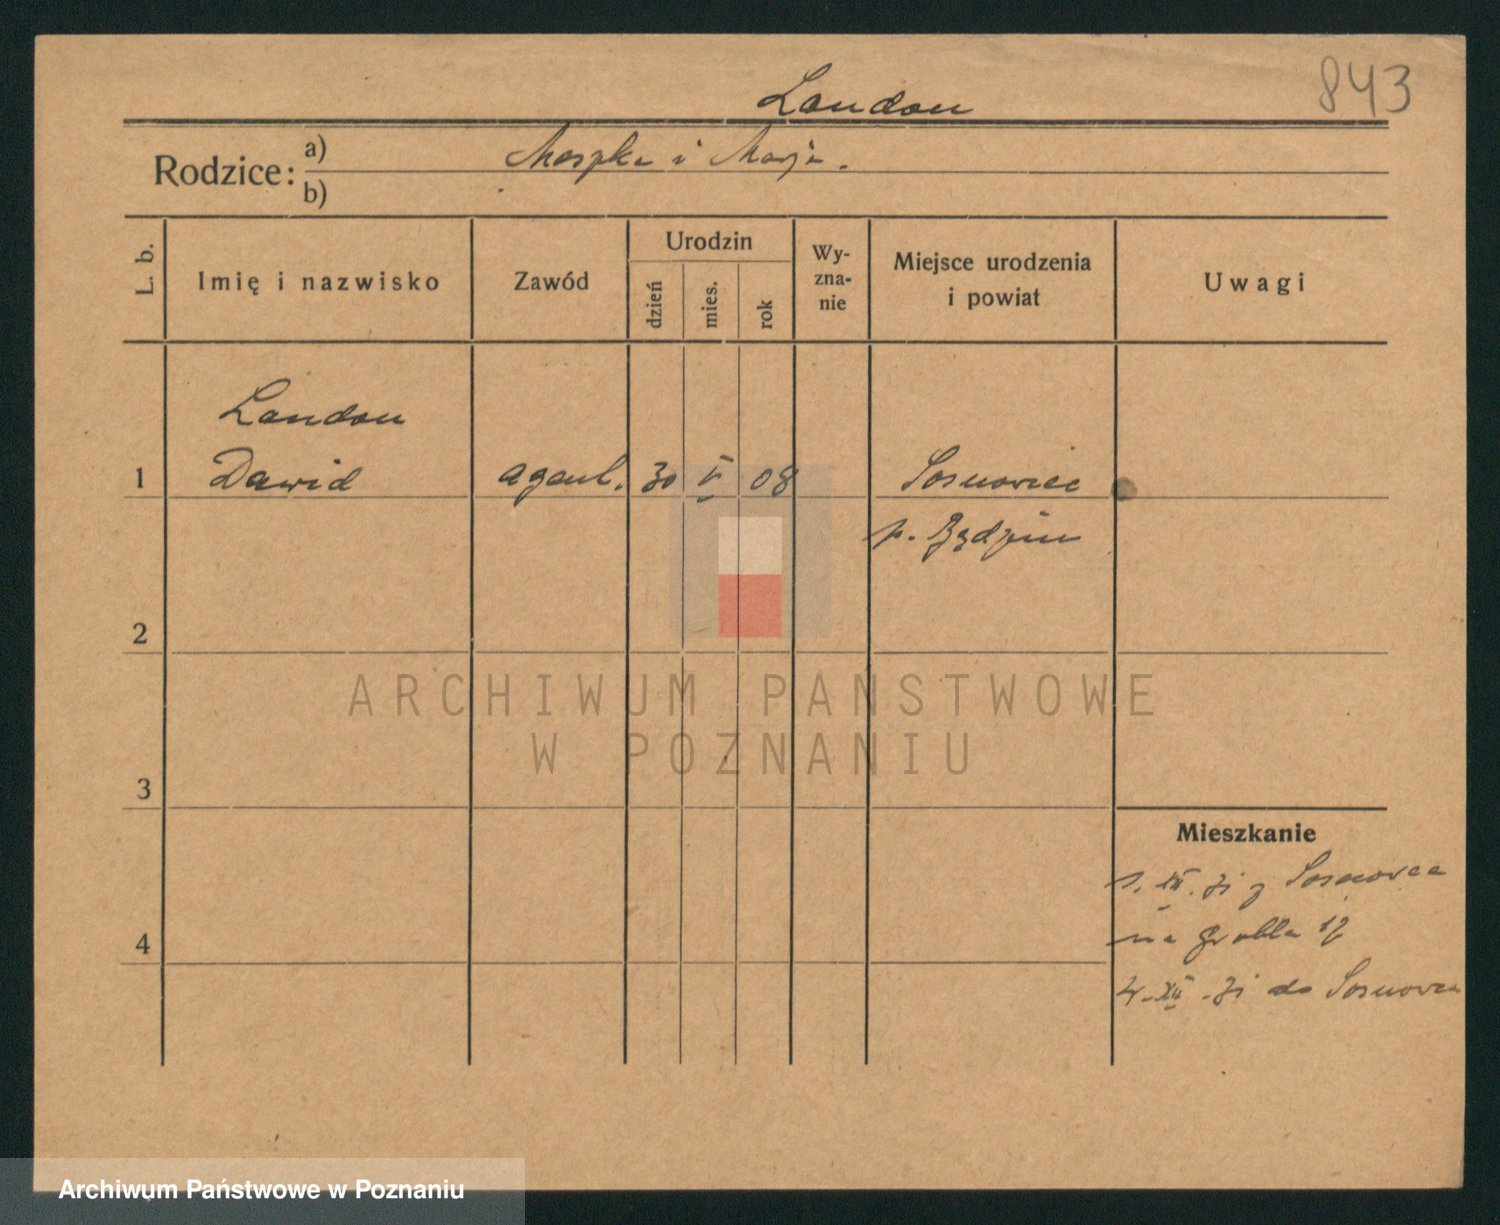 843
Landau
Rodzice: a) Moszka i Marja.
b)
L. b.
Imię i nazwisko
Zawód
Urodzin
dzień
mies.
rok
Wy-
zna-
nie
Miejsce urodzenia
i powiat
Uwagi
Landau
1 Dawid agent. 30 V 08 Sosnowiec
p. Będzin
2
3
4
ARCHIWUM PAŃSTWOWE
W POZNANIU
Mieszkanie
1. XII. 31 z Sosnowca
na Grobla 12
4. XII. 31 do Sosnowca
Archiwum Państwowe w Poznaniu